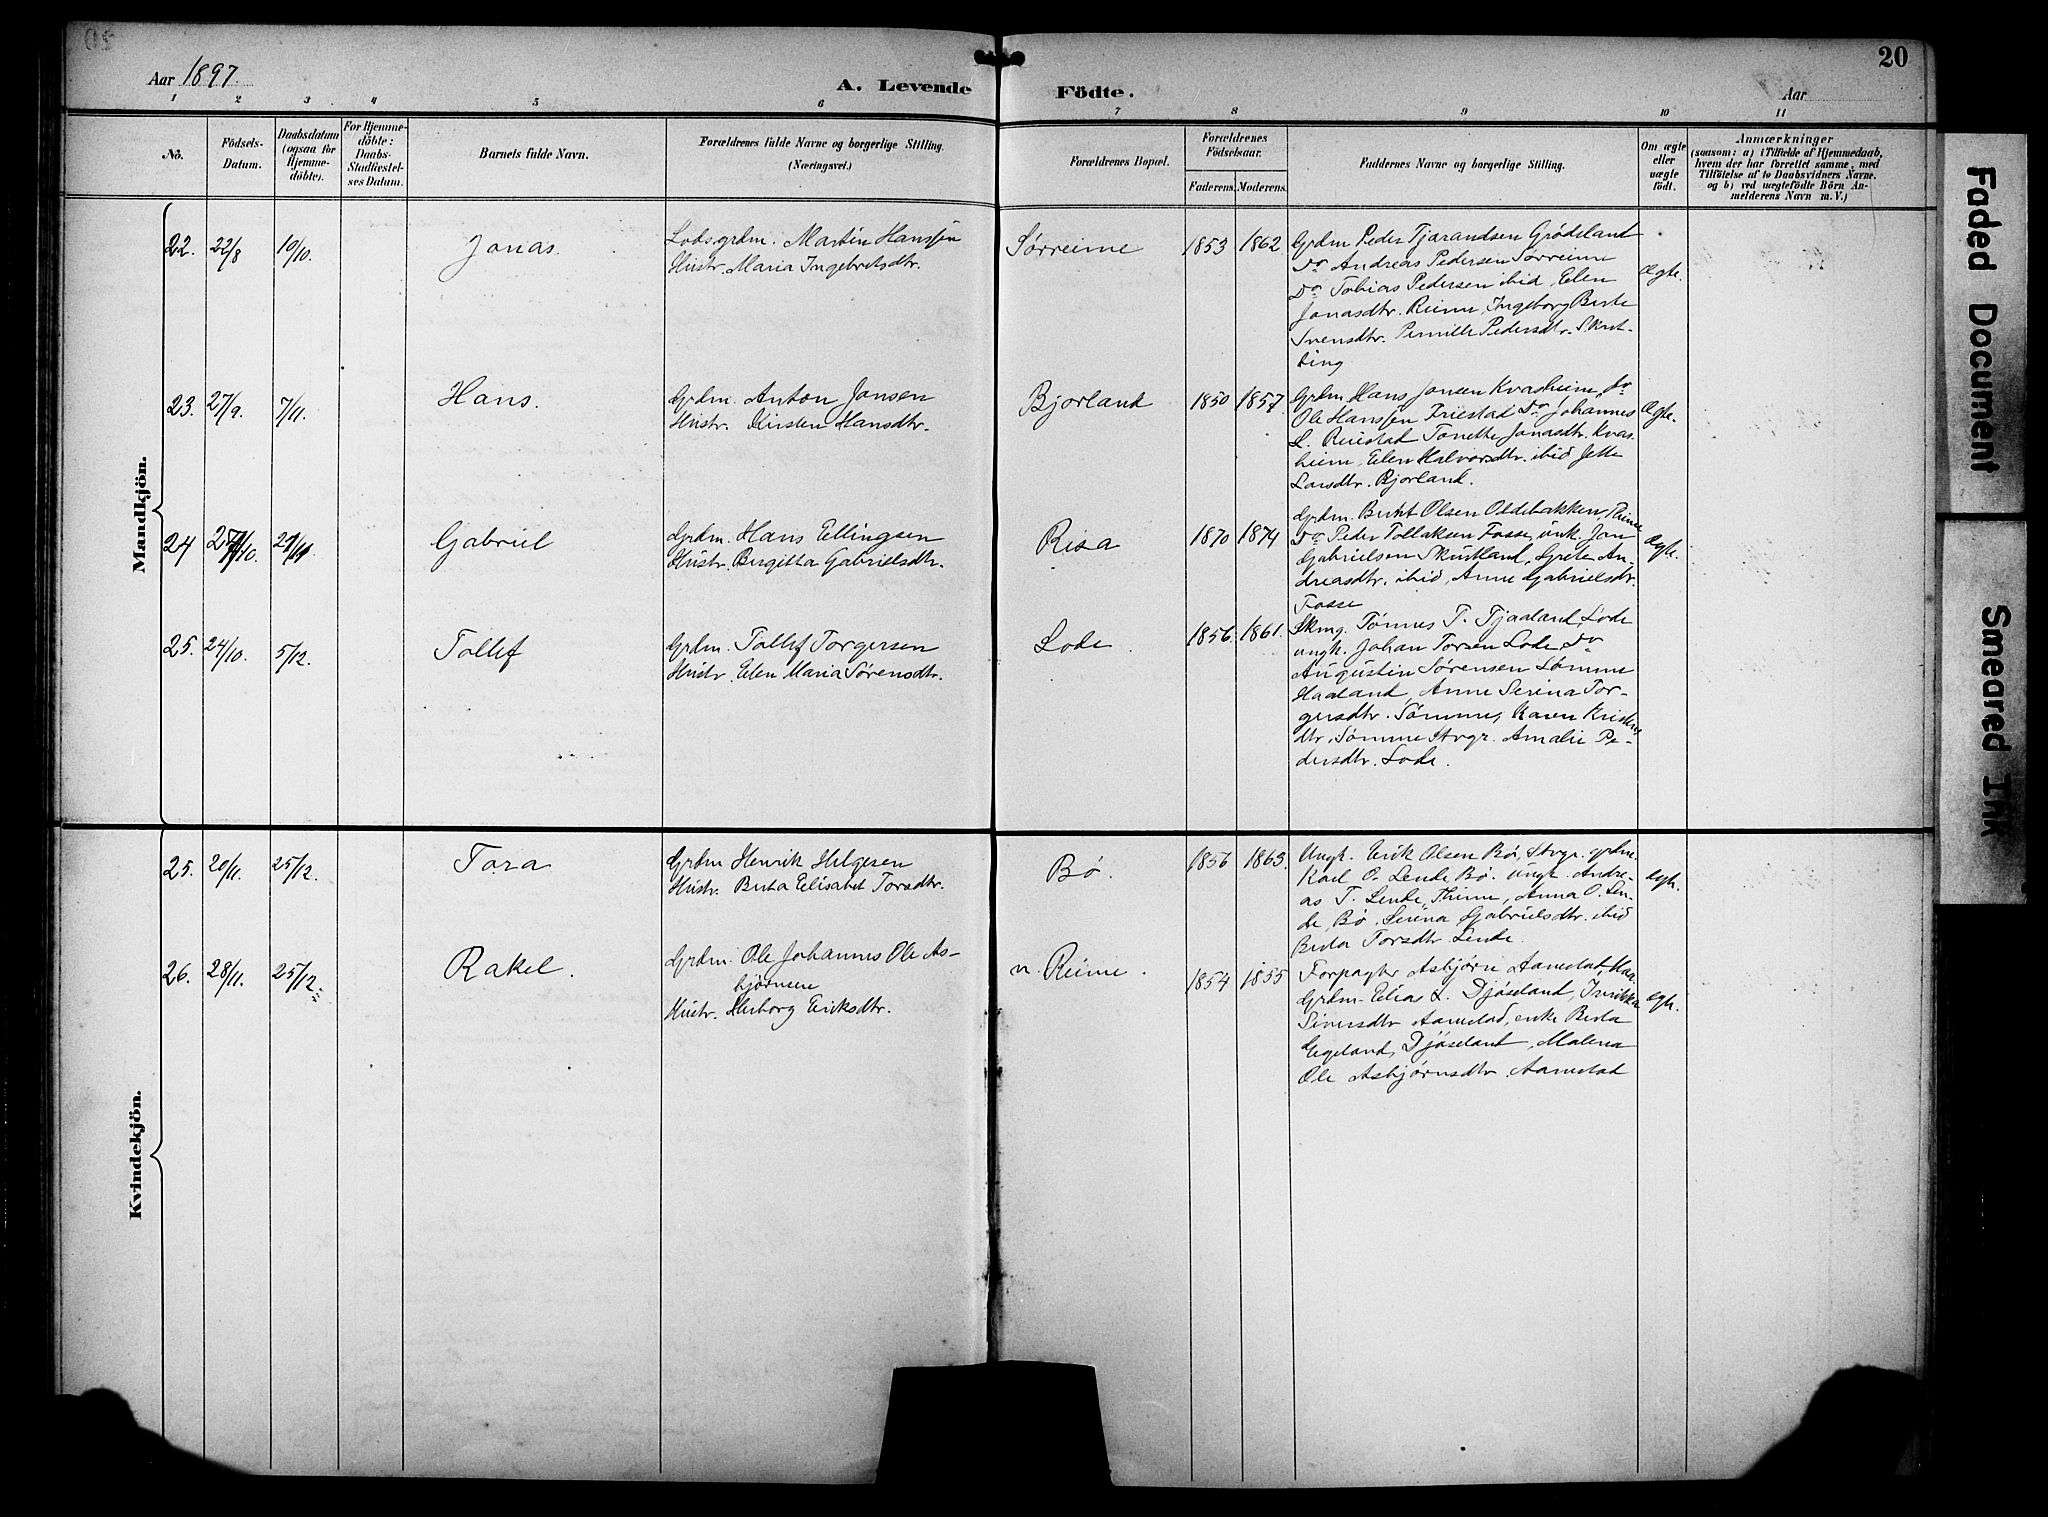 20
Aar 1897.
A. Levende Födte.
Aar
1 2 3 4 5 6 7 8 9 10 11
No.
Födsels-
Datum.
Daabsdatum
(ogsaa for
Hjemme-
döbte).
For Hjemme-
döbte:
Daabs-
Stadfæstel-
ses Datum.
Barnets fulde Navn.
Forældrenes fulde Navne og borgerlige Stilling.
(Næringsvei.)
Forældrenes Bopæl.
Forældrenes
Födselsaar.
Faderens. Moderens.
Faddernes Navne og borgerlige Stilling.
Om ægte
eller
uægte
födt.
Anmærkninger
(saasom: a) i Tilfælde af Hjemmedaab,
hvem der har forrettet samme, med
Tilföielse af to Daabsvidners Navne.
og b) ved uægtefödte Börn An-
melderens Navn m. V.)
Mandkjön.
22. 22/8 19/10. Jonas.
Lods grdm. Martin Hanssen
Hustr. Maria Ingebretsdtr.
Sørreime 1853 1862
Grdm Peder Tjarandsen Grødeland
Do Andreas Pedersen Sørreime
Do Tobias Pedersen ibid, Elen
Jonasdtr. Reime, Ingeborg Berte
Svensdtr. Pernille Pedersdtr. Skret-
ting
Ægte.
23. 27/9. 7/11. Hans.
Grdm. Anton Jonsen
Hustr. Kirsten Hansdtr.
Bjorland 1850 1857
Grdm. Hans Jonsen Kvasheim, Do
Ole Hanssen Friestad Do Johannes
L. Reiestad Tonette Jonasdtr. Kvas-
heim, Elen Halvorsdtr. ibid Jette
Larsdtr. Bjorland.
Ægte.
24 /10. Gabriel
Grdm. Hans Ellingsen
Hustr. Birgitta Gabrielsdtr.
Risa 1870 1874
Grdm. Berent Olsen Oldebakken, Reime
Do Peder Tollaksen Fosse, unk. Jan
Gabrielsen Skretland, Grete An-
dreasdtr. ibid, Anne Gabrielsdtr.
Fosse
Ægte.
25. 24/10. 5/12. Tollef
Grdm. Tollef Torgersen
Hustr. Elen Maria Sørensdtr.
Lode. 1856. 1861.
Skmg. Tønnes T. Tjaaland, Lode
ungk. Johan Torsen Lode, Do
Augustin Sørensen Sømme
Haaland, Anne Serina Tor-
gersdtr. Sømme, Karen
dtr. Sømme Stvgr. Amalie Pe-
dersdtr. Lode.
Kvindekjön.
25. 20/11. 25/12. Tora
Grdm Henrik Helgesen
Hustr. Berta Elisabet Torsdtr.
Bø. 1856 1863.
Ungk. Erik Olsen Bø, Stvgr. grdm.
Karl O. Lende Bø. ungk. Andre-
as T. Lende, Thime, Anna O. Len-
de, Bø. Serina Gabrielsdtr. ibid
Berta Torsdtr. Lende.
ægte.
26. 28/11. 25/12. Rakel.
Grdm. Ole Johannes Ole As-
bjørnsen
Hustr. Herborg Eriksdtr.
n. Reime. 1854 1855
Forpagter Asbjørn Aanestad,
Grdm. Elias L. Djøseland,
Siversdtr Aanestad, enke Berta
Egeland, Djøseland, Malena
Ole Asbjørnsdtr. Aanestad
ægte.
Faded Document
Smeared Ink